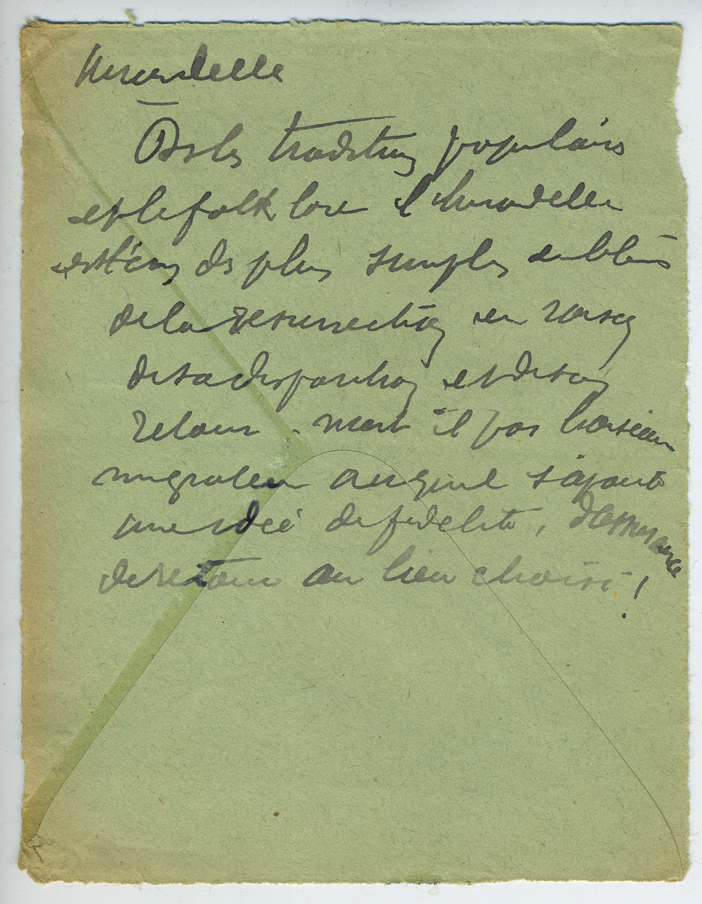 Hirondelle
Ds les traditions populaires
et le folk lore l'hirondelle
est l'un des plus simples emblèmes
de la résurrection en raison
de sa disparition et de son
retour. n'est il pas l'oiseau
migrateur auquel s'ajoute
une idée de fidélité, d'assurance
de retour au lieu choisi !